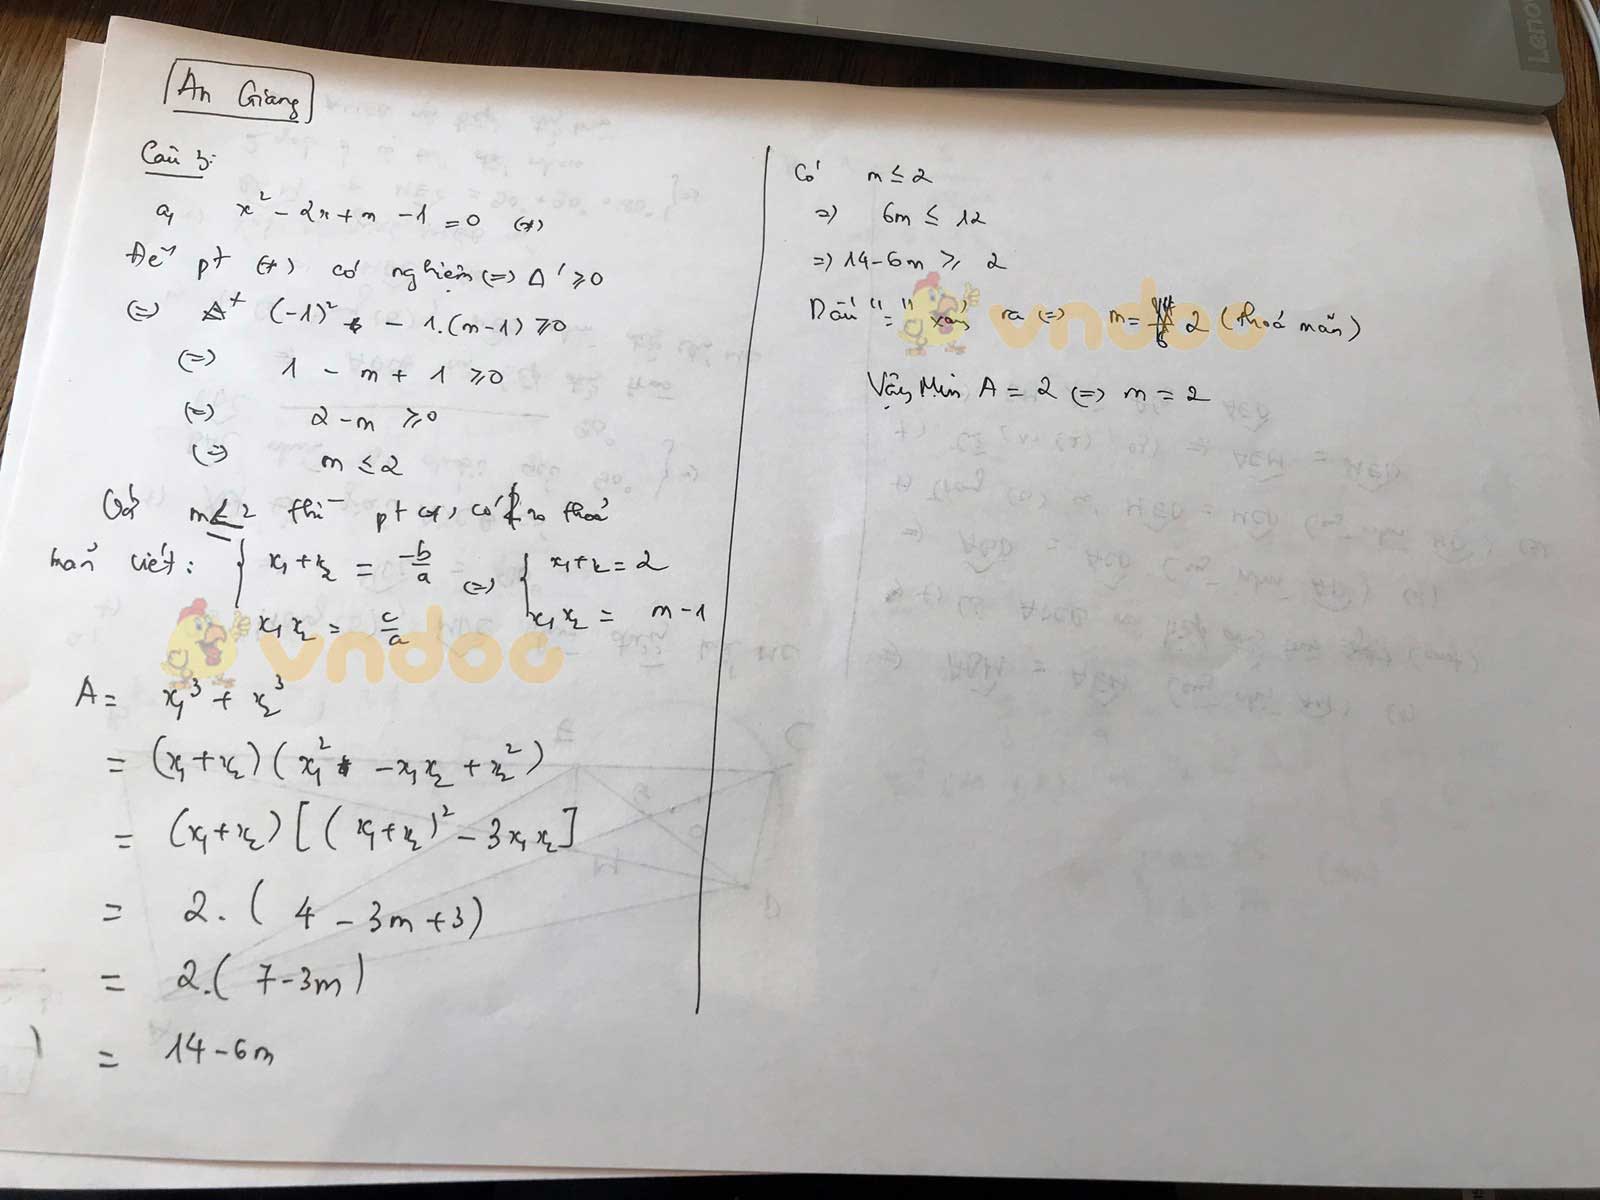 An Giang
Câu 3:
a, x² - 2x + m - 1 = 0 (*)
Để pt (*) có nghiệm <=> Δ' ≥ 0
<=> (-1)² - 1.(m-1) ≥ 0
<=> 1 - m + 1 ≥ 0
<=> 2 - m ≥ 0
<=> m ≤ 2
Với m ≤ 2 thì pt (*) có no thoả
mãn viét: { x₁ + x₂ = -b/a <=> { x₁ + x₂ = 2
x₁x₂ = c/a x₁x₂ = m - 1
vndoc
A = x₁³ + x₂³
= (x₁ + x₂)(x₁² - x₁x₂ + x₂²)
= (x₁ + x₂)[(x₁ + x₂)² - 3x₁x₂]
= 2.(4 - 3m + 3)
= 2.(7 - 3m)
= 14 - 6m
Có m ≤ 2
=> 6m ≤ 12
=> 14 - 6m ≥ 2
Dấu "=" xảy ra <=> m = 2 (thoả mãn)
vndoc
Vậy Min A = 2 <=> m = 2
Lenovo